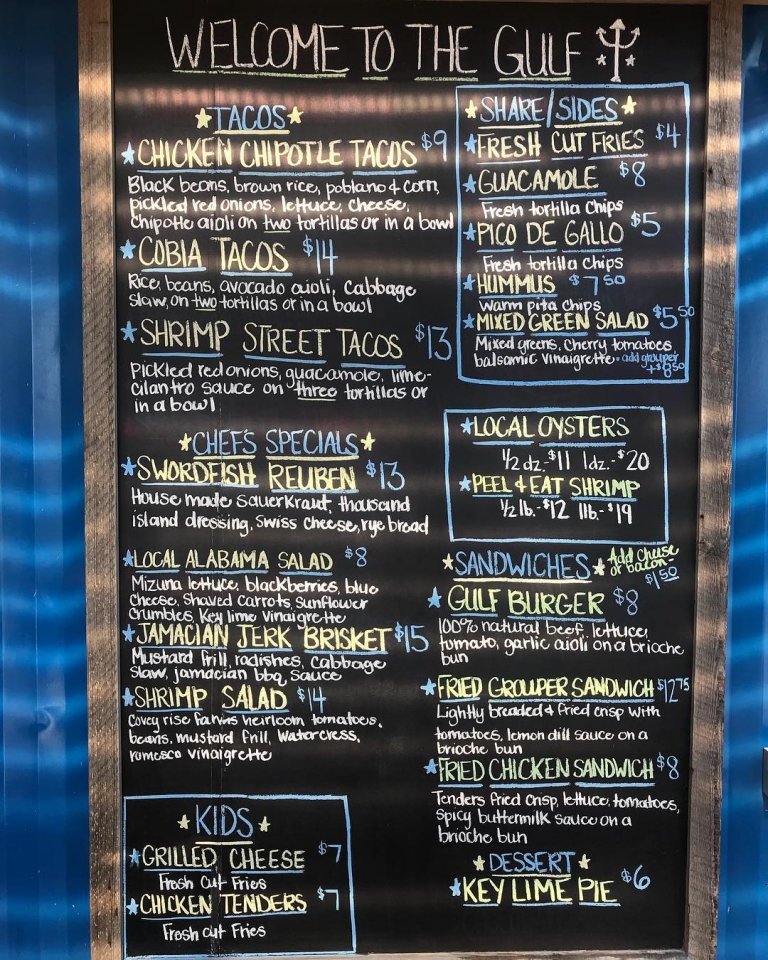 WELCOME TO THE GULF
TACOS
CHICKEN CHIPOTLE TACOS $9
Black beans, brown rice, poblano & corn,
pickled red onions, lettuce, cheese,
chipotle aioli on two tortillas or in a bowl
COBIA TACOS $14
Rice, beans, avocado aioli, Cabbage
slaw, on two tortillas or in a bowl
SHRIMP STREET TACOS $13
Pickled red onions, guacamole, lime-
cilantro sauce on three tortillas or
in a bowl
CHEF'S SPECIALS
SWORDFISH REUBEN $13
House made sauerkraut, thousand
island dressing, Swiss cheese, rye bread
LOCAL ALABAMA SALAD $8
Mizuna lettuce, blackberries, blue
Cheese, Shaved Carrots, Sunflower
Crumbles, Key lime Vinaigrette
JAMACIAN JERK BRISKET $15
Mustard frill, radishes, Cabbage
Slaw, jamacian bbq sauce
SHRIMP SALAD $14
Covey rise farms heirloom tomatoes,
beans, mustard frill, watercress,
romesco vinaigrette
KIDS
GRILLED CHEESE $7
Fresh Cut Fries
CHICKEN TENDERS $7
Fresh cut Fries
SHARE/SIDES
FRESH CUT FRIES $4
GUACAMOLE $8
Fresh tortilla Chips
PICO DE GALLO $5
Fresh tortilla Chips
HUMMUS $7 50
Warm pita chips
MIXED GREEN SALAD $5 50
Mixed greens, Cherry tomatoes
balsamic vinaigrette • add grouper
+$8 50
LOCAL OYSTERS
1/2 dz.-$11 1dz.-$20
PEEL & EAT SHRIMP
1/2 lb.-$12 1lb.-$19
SANDWICHES
Add Cheese
or bacon-
$1 50
GULF BURGER $8
100% natural beef, lettuce,
tomato, garlic aioli on a brioche
bun
FRIED GROUPER SANDWICH $12 75
Lightly breaded & fried crisp with
tomatoes, lemon dill sauce on a
brioche bun
FRIED CHICKEN SANDWICH $8
Tenders fried crisp, lettuce, tomatoes,
spicy buttermilk sauce on a
brioche bun
DESSERT
KEY LIME PIE $6